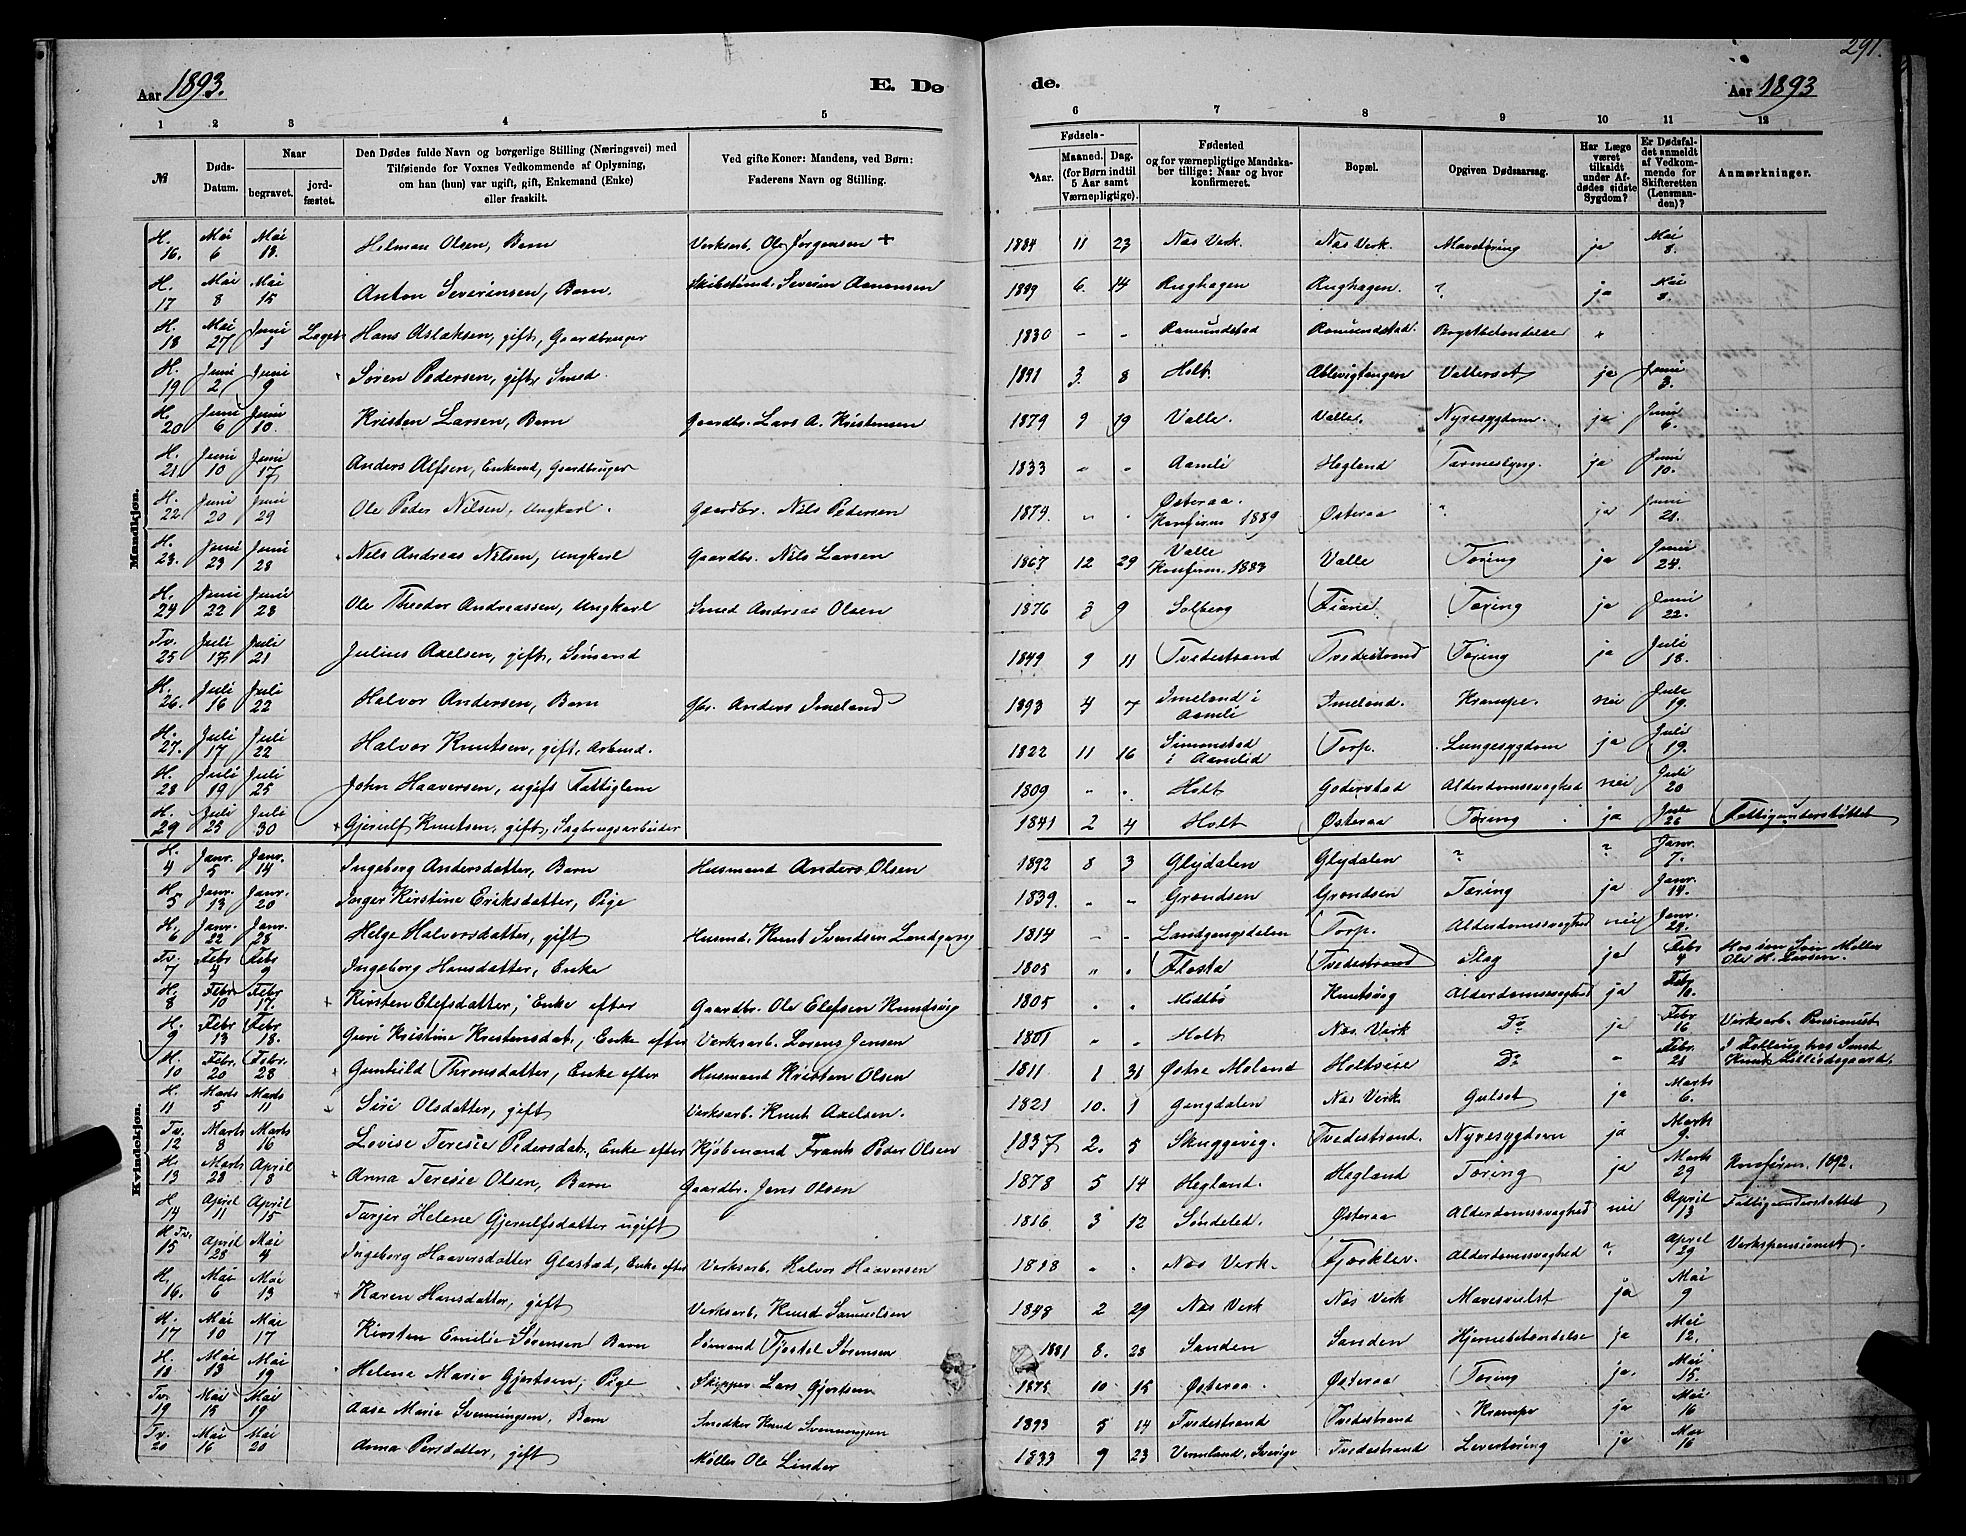 291.
Aar 1893. E. Dø de. Aar 1893
1 2 3 4 5 6 7 8 9 10 11 12
№ Døds-Datum. Naar begravet. jord-fæstet. Den Dødes fulde Navn og borgerlige Stilling (Næringsvei) med Tilføiende for Voxnes Vedkommende af Oplysning, om han (hun) var ugift, gift, Enkemand (Enke) eller fraskilt. Ved gifte Koner: Mandens, ved Børn: Faderens Navn og Stilling. Fødsels- Aar. Maaned. Dag. (for Børn indtil 5 Aar samt Værnepligtige). Fødested og for værnepligtige Mandskaber tillige: Naar og hvor konfirmeret. Bopæl. Opgiven Dødsaarsag. Har Læge været tilkaldt under Afdødes sidste Sygdom? Er Dødsfaldet anmeldt af Vedkommende for Skifteretten (Lensmanden)? Anmærkninger.
Mandkjøn.
H. 16. Mai 6 Mai 13. Hilman Olsen, Barn Verksarb. Ole Jørgensen + 1884 11 23 Næs Verk. Næs Verk. Mavetæring ja Mai 8.
H. 17 Mai 8 Mai 15 Anton Severinsen, Barn. Skibstømd. Severin Aanonsen 1889 6. 14 Rughagen Rughagen. ? ja Mai 8.
H. 18 Mai 27 Juni 1 Hans Aslaksen, gift, Gaardbruger 1830 - - Ramundstad Ramundstad. Brystbetændelse "
H. 19 Juni 2 Juni 9 Søren Pedersen, gift, Smed. 1891 3. 8 Holt. Ablevigtangen Vattersot ja Juni 3.
H. 20 Juni 6 Juni 10. Kristen Larsen, Barn Gaardbr. Lars A. Kristensen 1879 9 19 Valle. Valle. Nyresygdom. ja Juni 6.
H. 21 Juni 10 Juni 17 Anders Alfsen, Enkemd, Gaardbruger 1833 " " Aamli Hegland Tarmeslyng. ja Juni 10.
H. 22 Juni 20 Juni 29 Ole Peder Nilsen, Ungkarl. Gaardbr. Nils Pedersen 1874. " " Østeraa. Konfirm 1889 Østeraa " ja Juni 21.
H. 23. Juni 23 Juni 28 Nils Andreas Nilsen, Ungkarl Gaardbr. Nils Larsen 1867 12 29 Valle Konfirm. 1883 Valle Tæring ja Juni 24.
H. 24 Juni 22 Juni 28 Ole Theodor Andreassen, Ungkarl Smed Andreas Olsen 1876 3 9 Solberg Fiane. Tæring ja Juni 22.
Tv. 25 Juli 17 Juli 21 Julius Axelsen, gift, Sømand 1849 9 11 Tvedestrand Tvedestrand Tæring ja Juli 18.
H. 26. Juli 16 Juli 22 Halvor Andersen, Barn Gbr. Anders Imeland 1893 4 7 Imeland i Aamli Imeland. Krampe. nei Juli 19.
H. 27. Juli 17 Juli 22 Halvor Knutsen, gift, Arbmd. 1822 11 16 Simonstad i Aamlid Torp. Lungesygdom ja Juli 19.
H. 28 Juli 19 Juli 25 John Haaversen, ugift Fattiglem 1809 " " Holt Goderstad Alderdomssvaghed nei Juli 20
H. 29 Juli 25 Juli 30 + Gjerulf Knutsen, gift, Sagbrugsarbeider 1841 2 4 Holt Østeraa Tæring ja Juli 26 Fattigunderstøttet
Kvindekjøn.
H. 4 Janr. 5 Janr. 14 Ingeborg Andersdatter, Barn Husmand Anders Olsen 1892 8 3 Glydalen Glydalen ? ? Janr. 7.
H. 5 Janr. 13 Janr. 20 Inger Kirstine Eriksdatter, Pige 1839. " " Grøndsen Grøndsen Tæring ja Janr. 14.
H. 6 Janr. 22 Janr. 28 Helge Halvorsdatter, gift Husmd. Knut Svendsen Landgang 1814 " " Landgangsdalen Torp. Alderdomssvaghed nei Janr. 24.
Tv. 7 Febr 4 Febr 9 Ingeborg Hansdatter, Enke 1805 " " Flosta Tvedestrand Slag ja Febr 4 Hos sin Søn Møller Ole H. Larsen.
H. 8 Febr 10 Febr 17. + Kirsten Elefsdatter, Enke efter Gaardbr. Ole Elefsen Knudsvig 1805 " " Midtbø Knutsvig Alderdomssvaghed ja Febr 10.
H. 9 Febr 13 Febr 18. Guri Kristine Kristensdat, Enke efter Verksarb. Lorens Jensen 1801 " " Holt Næs Verk Do ja Febr 16 Verksarb. Pensionist
H. 10 Febr. 20 Febr. 28 Gunhild Thronsdatter, Enke efter Husmand Kristen Olsen 1811 1 31 Østre Moland Holtveie Do " Febr. 21
H. 11 Marts 5 Marts 11 Siri Olsdatter, gift Verksarb. Knut Axelsen. 1821 10. 1 Gangdalen Næs Verk Gulsot ja Marts 6.
Tv. 12 Marts 8 Marts 16 Lovise Teresie Pedersdat, Enke efter Kjøbmand Frants Peder Olsen 1837 2. 5 Skuggevig. Tvedestrand. Nyresygdom ja Marts 9.
H. 13 Marts 28 April 8 Anna Teresie Olsen, Barn Gaardbr. Jens Olsen 1878 5 14 Hegland. Hegland Tæring ja Marts 29 Konfirm. 1892.
H. 14 April 11 April 15 Tarjer Helene Gjerulfsdatter ugift 1816 3 12 Søndeled. Østeraa Alderdomssvaghed nei April 13 Fattigunderstøttet
H. Tv. 15 April 28 Mai 4 Ingeborg Haaversdatter Glastad, Enke efter Verksarb. Halvor Haaversen 1818 " " Næs Verk. Fjæreklev. Alderdomssvaghed ? April 29 Verkspensionist.
H. 16. Mai 6 Mai 13 + Karen Hansdatter, gift Verksarb. Knud Samuelsen 1848 2 29 Næs Verk Næs Verk Mavesvulst ja Mai 9
H. 17 Mai 10 Mai 17 Kirsten Emilie Sørensen Barn Sømand Tjøstel Sørensen 1881 8. 28 Sanden Sanden Hjernebetændelse ja Mai 12.
H. 18 Mai 13 Mai 19 Helene Marie Gjertsen, Pige Skipper Lars Gjertsen 1875 10 15 Østeraa. Østeraa Tæring ja. Mai 15.
Tv. 19 Mai 15 Mai 19 Aase Marie Svenningsen, Barn Snedker Knud Svenningsen 1893 5 14 Tvedestrand Tvedestrand Krampe ja Mai 16
Tv. 20 Mai 16 Mai 20 Anna Persdatter, gift Møller Ole Linder 1833 9 23 Vermland, Sverige Tvedestrand Levertæring ja Mai 16